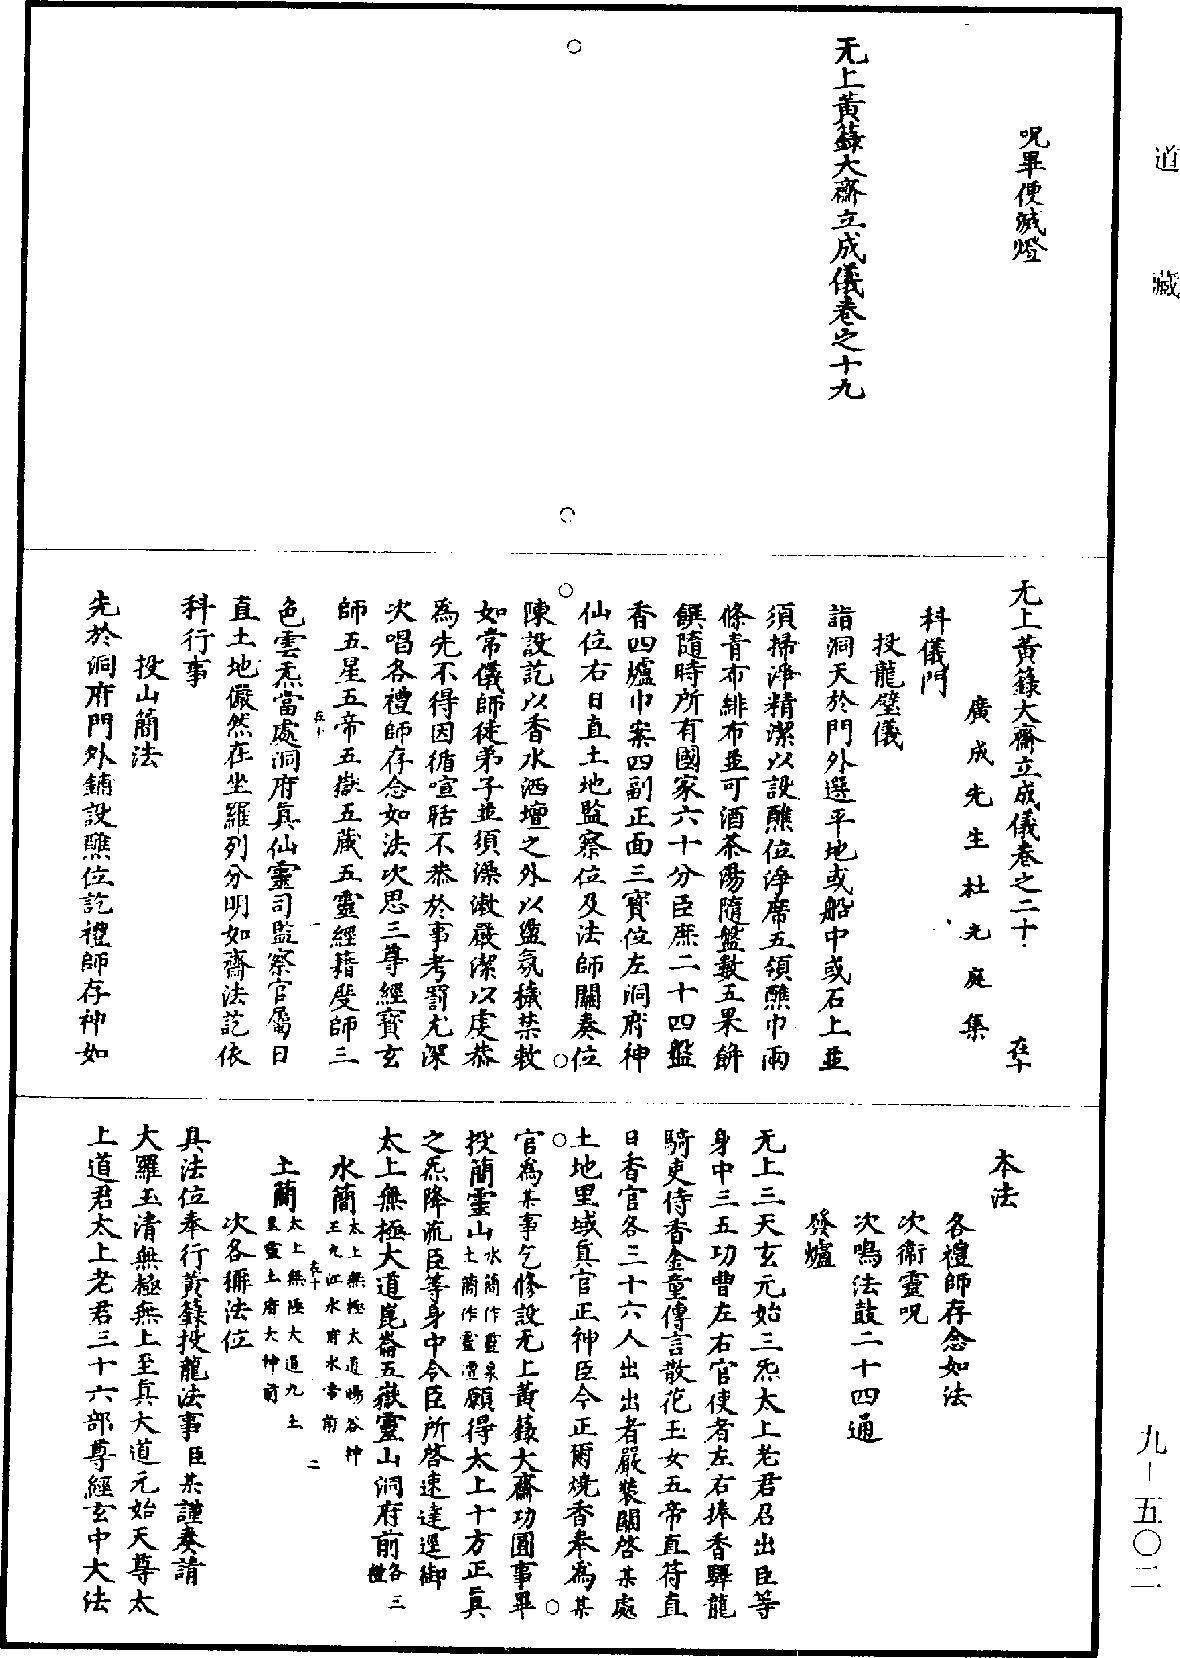 道藏
九-五〇二
呪畢便滅燈
无上黃籙大齋立成儀卷之十九
无上黃籙大齋立成儀卷之二十
廣成先生杜光庭集
科儀門
投龍璧儀
詣洞天於門外選平地或船中或石上並
須掃淨精潔以設醮位淨席五領醮巾兩
條青布緋布並可酒茶湯隨盤數五果餅
饌隨時所有國家六十分臣庶二十四盤
香四爐巾案四副正面三寳位左洞府神
仙位右日直土地監察位及法師關奏位
陳設訖以香水洒壇之外以盪氛穢禁敕
如常儀師徒弟子並須澡漱嚴潔以虔恭
為先不得因循喧聒不恭於事考罰尤深
次唱各禮師存念如法次思三尊經寳玄
師五星五帝五嶽五藏五靈經籍度師三
色雲炁當處洞府真仙靈司監察官屬日
直土地儼然在坐羅列分明如齋法訖依
科行事
投山簡法
先於洞府門外鋪設醮位訖禮師存神如
本法
各禮師存念如法
次衛靈呪
次鳴法鼓二十四通
發爐
无上三天玄元始三炁太上老君召出臣等
身中三五功曹左右官使者左右捧香驛龍
騎吏侍香金童傳言散花玉女五帝直符直
日香官各三十六人出出者嚴裝關啓某處
土地里域真官正神臣今正爾燒香奉為某
官為某事乞修設无上黃籙大齋功圓事畢
投簡靈山水簡作靈泉土簡作靈壇願得太上十方正真
之炁降流臣等身中令臣所啓速達逕御
太上無極大道崑崙五嶽靈山洞府前各三禮
水簡太上無極大道暘谷神王九江水府水帝前
土簡太上無極大道九土皇靈土府大神前
次各稱法位
具法位奉行黃籙投龍法事臣某謹奏請
大羅玉清無極無上至真大道元始天尊太
上道君太上老君三十六部尊經玄中大法